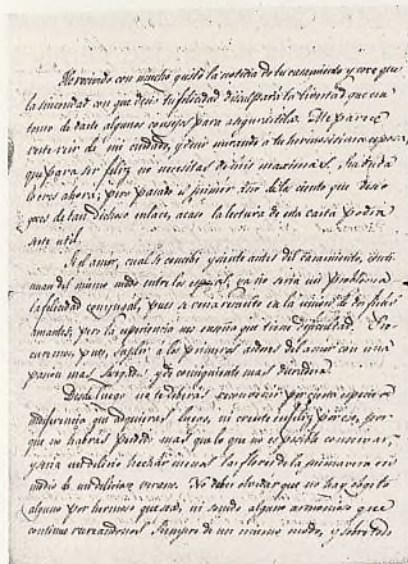 He recivido con mucho gusto la noticia de tu casamiento y creo que
la sinceridad con que deseo tu felicidad disculpará la libertad que me
tomo de darte algunos consejos para asegurartela. Me parece
verte reir de mi cuidado, y decir mirando a tu hermosisima esposa,
que para ser feliz no necesitas de mis maximas. Sin duda
lo eres ahora; pero pasado el primer año de la
de tan dichoso enlace, acaso la lectura de esta carta podra
serte util.
Si el amor, cual se concibe y siente antes del casamiento,
del mismo modo entre los esposos, ya no seria un problema
la felicidad conyugal, pues en la union de dos fieles
amantes; pero la esperiencia nos enseña que tiene dificultad. Pro-
curemos pues, suplir á los primeros ardores del amor con una
pasion mas y de consiguiente mas duradera.
Desde luego no te deberás reconvenir por cierta especie de
indiferencia que adquieras luego, ni creerte infeliz por eso, por-
que no habrás perdido mas que lo que no es posible conservar,
y seria un delirio hechar menos las flores de la primavera en
medio de un delicioso verano. No debes olvidar que no hay objeto
alguno por hermoso que sea, ni sonido alguno armonioso que
continue recreandonos siempre de un mismo modo, y sobre todo